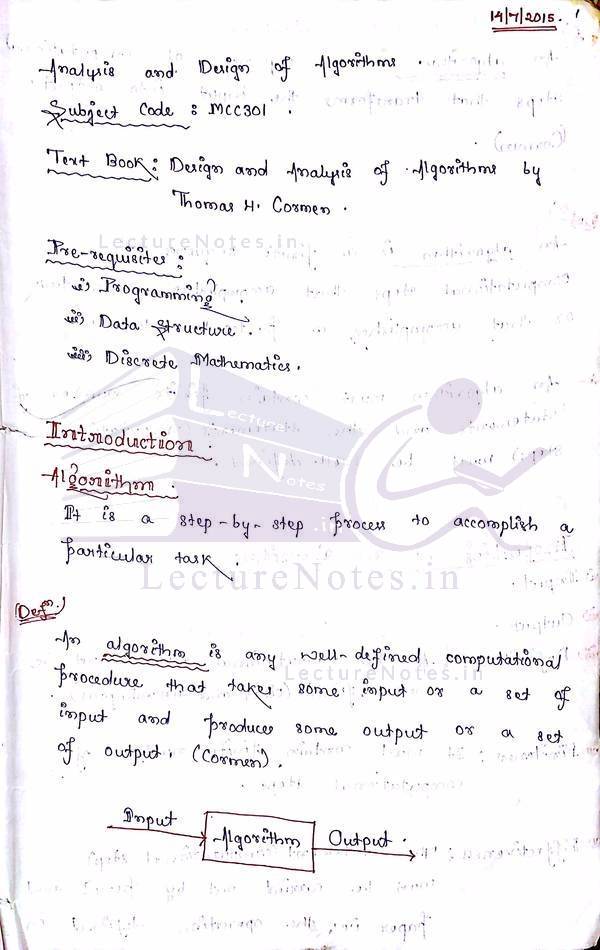 14/7/2015. 1
Analysis and Design of Algorithms.
Subject Code : MCC301.
Text Book : Design and Analysis of Algorithms by
Thomas H. Cormen.
LectureNotes.in
Pre-requisites :
i) Programming.
ii) Data Structure.
iii) Discrete Mathematics.
Introduction.
Lecture
Notes
.in
Algorithm.
It is a step-by-step process to accomplish a
particular task.
LectureNotes.in
(Defn.)
An algorithm is any well-defined computational
LectureNotes.in
procedure that takes some input or a set of
input and produces some output or a set
of output. (Cormen).
Input Algorithm Output.